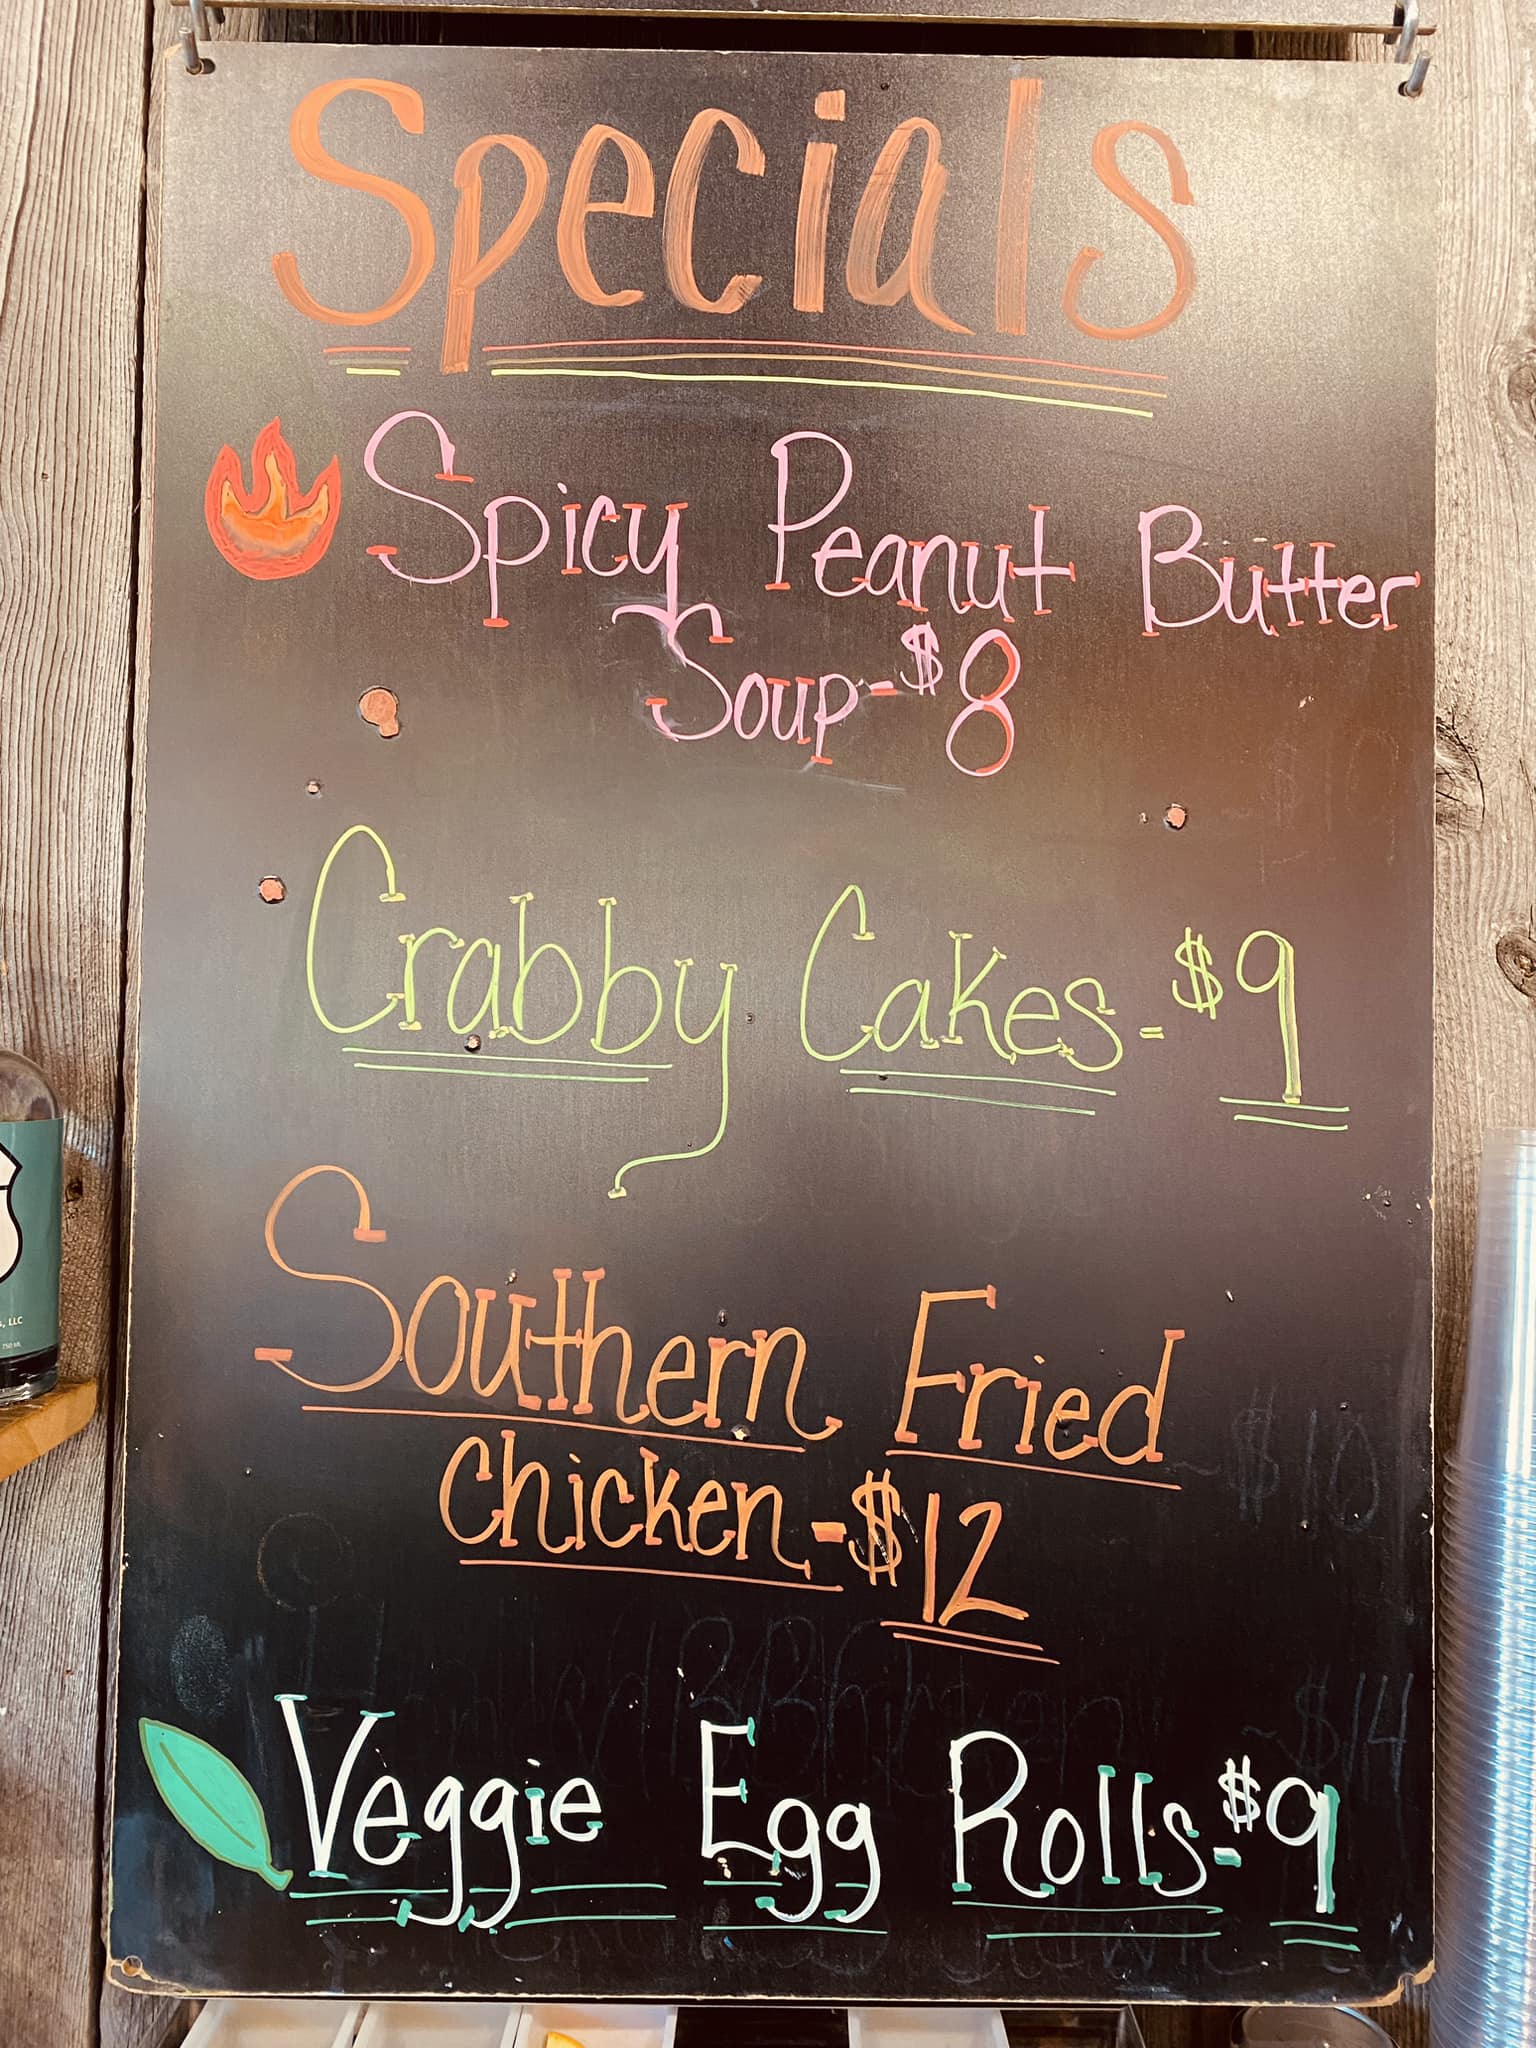 Specials
Spicy Peanut Butter
Soup-$8
Crabby Cakes-$9
Southern Fried
Chicken-$12
Veggie Egg Rolls-$9
, LLC
750 ML
$10
$14